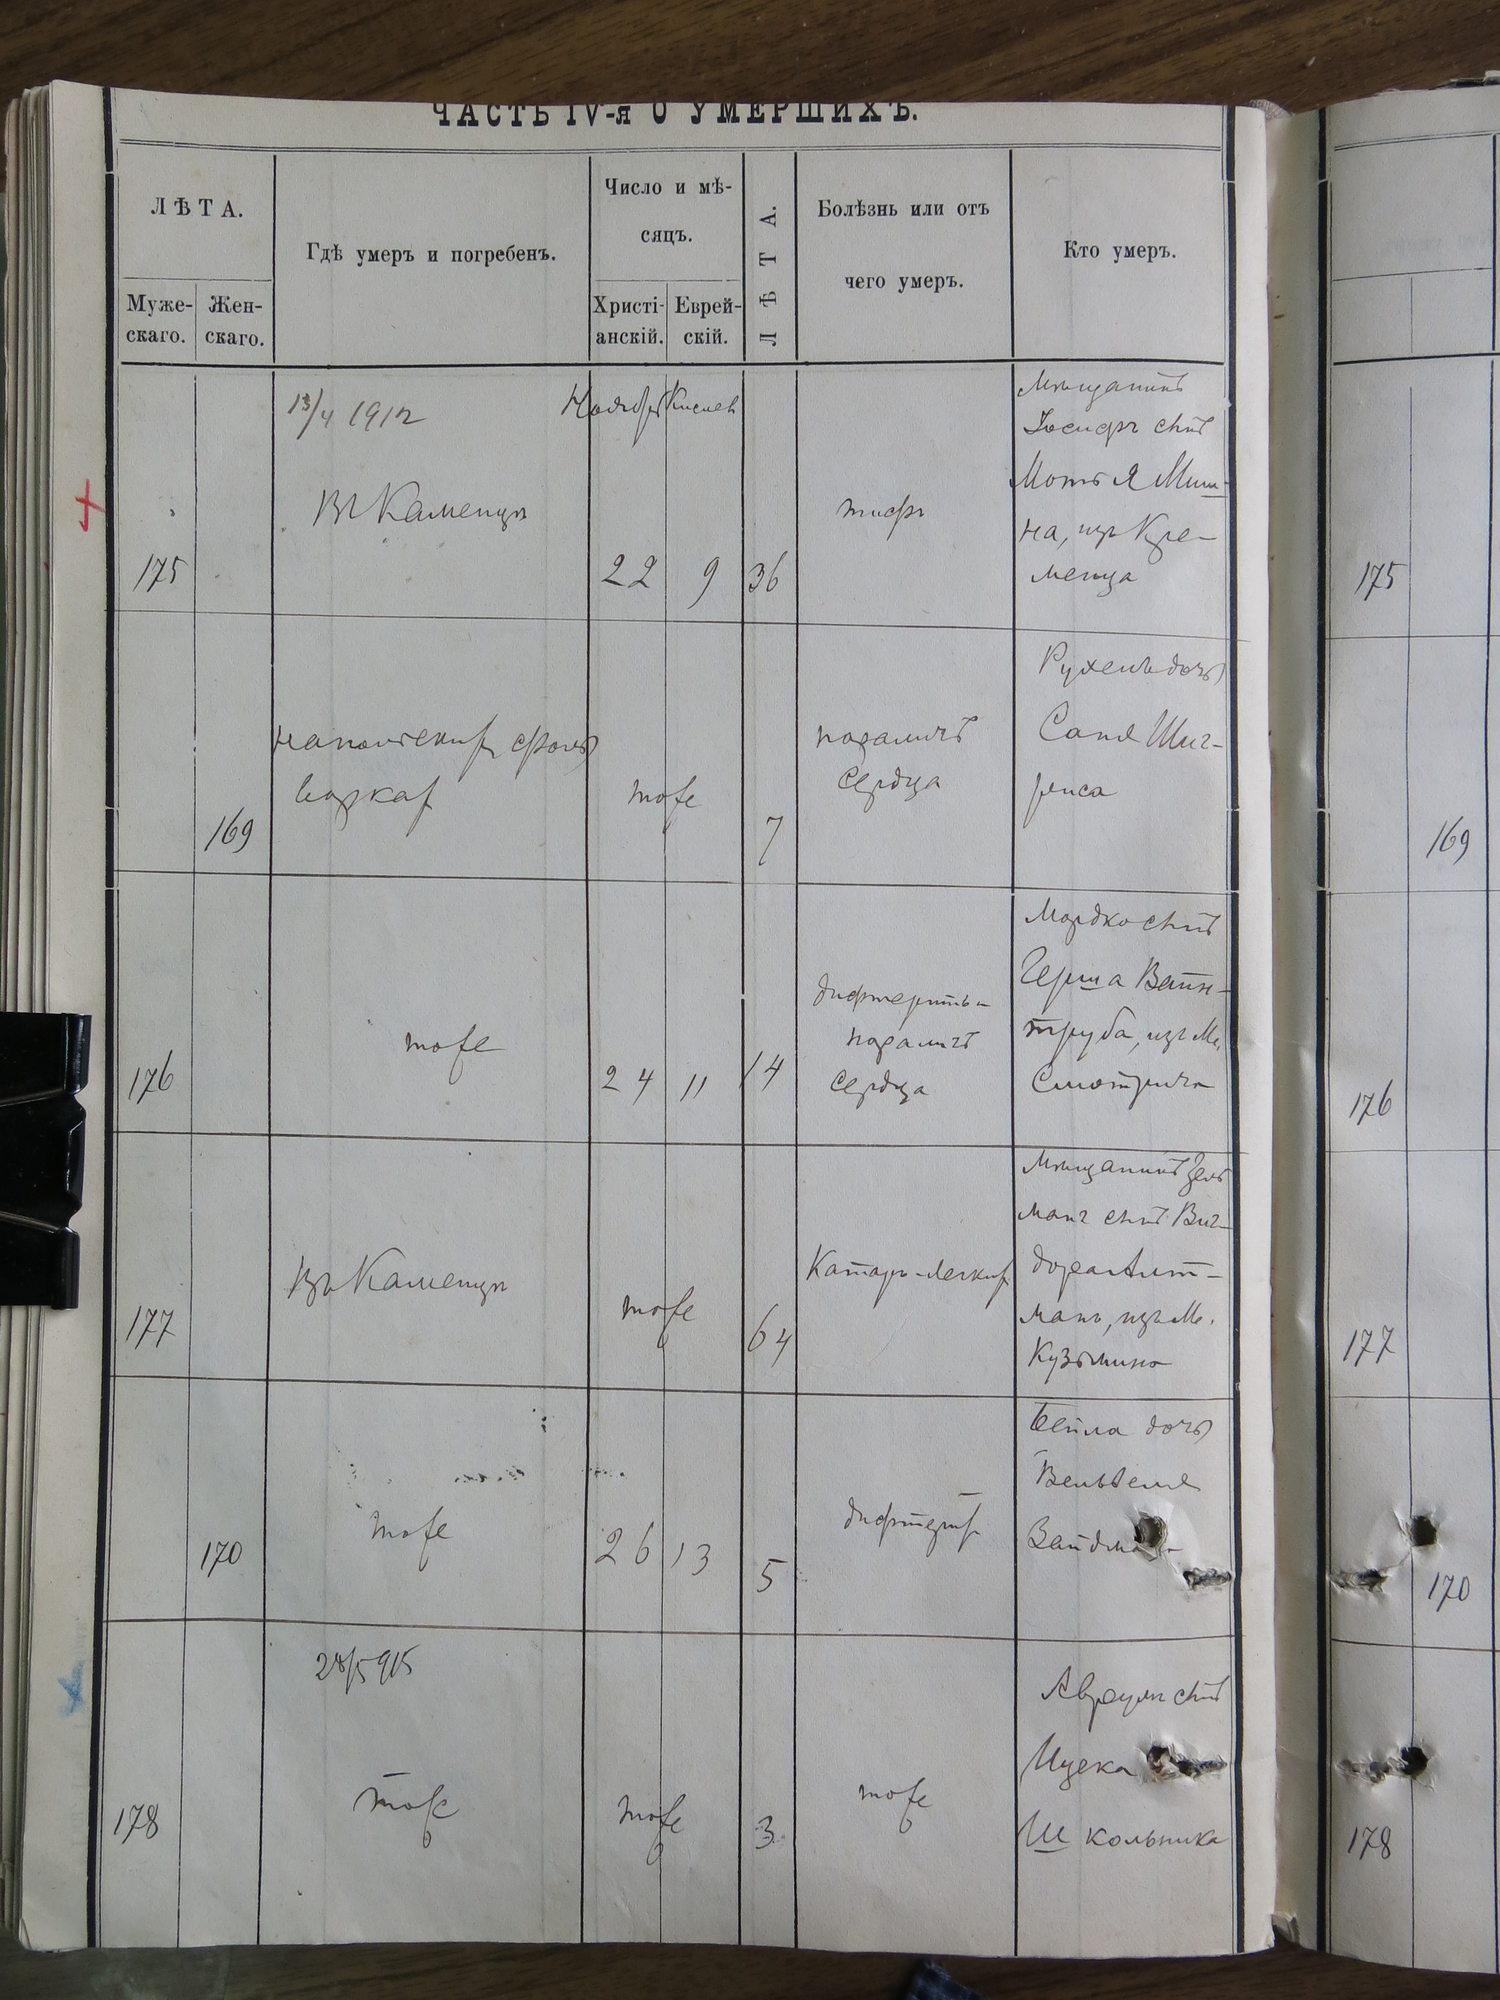 ЧАСТЬ IV-я О УМЕРШИХЪ.
ЛѢТА.
Муже-
скаго.
Жен-
скаго.
Гдѣ умеръ и погребенъ.
Число и мѣ-
сяцъ.
Христі-
анскій.
Еврей-
скій.
ЛѢТА.
Болѣзнь или отъ
чего умеръ.
Кто умеръ.
175
13/4 1912
Въ Каменцѣ
Ноябрь Кислев
22 9 36
тифъ
Мѣщанинъ
Іосифъ сынъ
Мотя Миш-
на, изъ Кре-
менца
175
169
польскихъ фоль
варкахъ
тоже
7
параличъ
сердца
Рухель дочь
Сапя Шиг-
риса
169
176
тоже
24 11 14
дифтеритъ-
параличъ
сердца
Мордко сынъ
Герша Вайн-
труба, изъ м.
Смотрича
176
177
Въ Каменцѣ
тоже
64
Катаръ легкихъ
Мѣщанинъ Зель
манъ сынъ Виг-
дора Альт-
манъ, изъ м.
Кузьмина
177
170
тоже
26 13 5
дифтеритъ
Бейла дочь
Вельвеля
170
178
28/5 915
тоже
тоже
3
тоже
Авраумъ сынъ
Ицека
Школьника
178